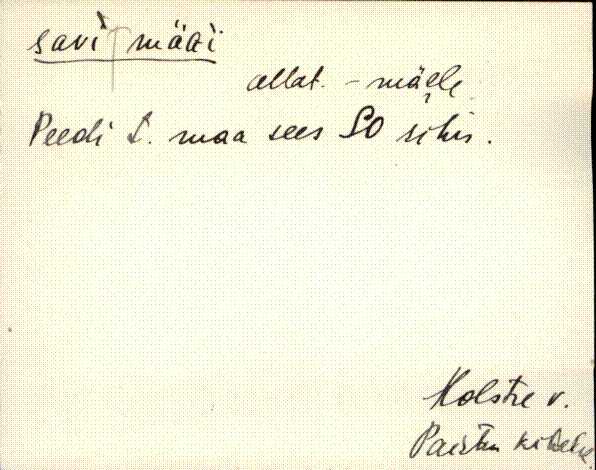 savi mägi
allat. -mäele
Peedi t. maa sees SO sihis.
Holstre v.
Paistu kihelk.